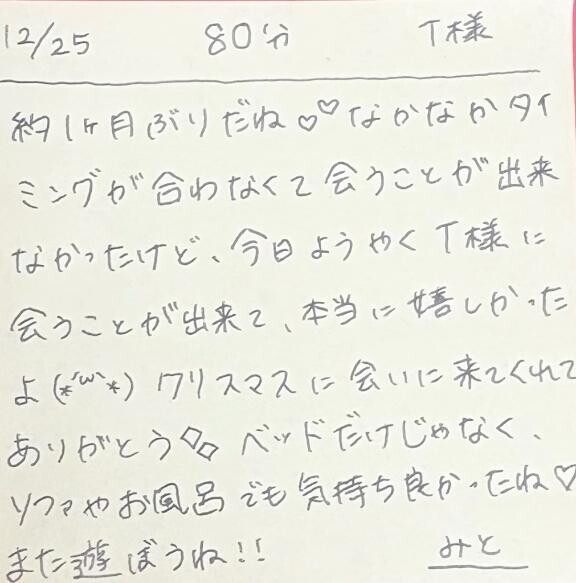 12/25 80分 T様
約1ヶ月ぶりだね♡♡なかなかタイ
ミングが合わなくて会うことが出来
なかったけど、今日ようやくT様に
会うことが出来て、本当に嬉しかった
よ(*´ω`*) クリスマスに会いに来てくれて
ありがとう◇◇ ベッドだけじゃなく、
ソファやお風呂でも気持ち良かったね♡
また遊ぼうね!! みと